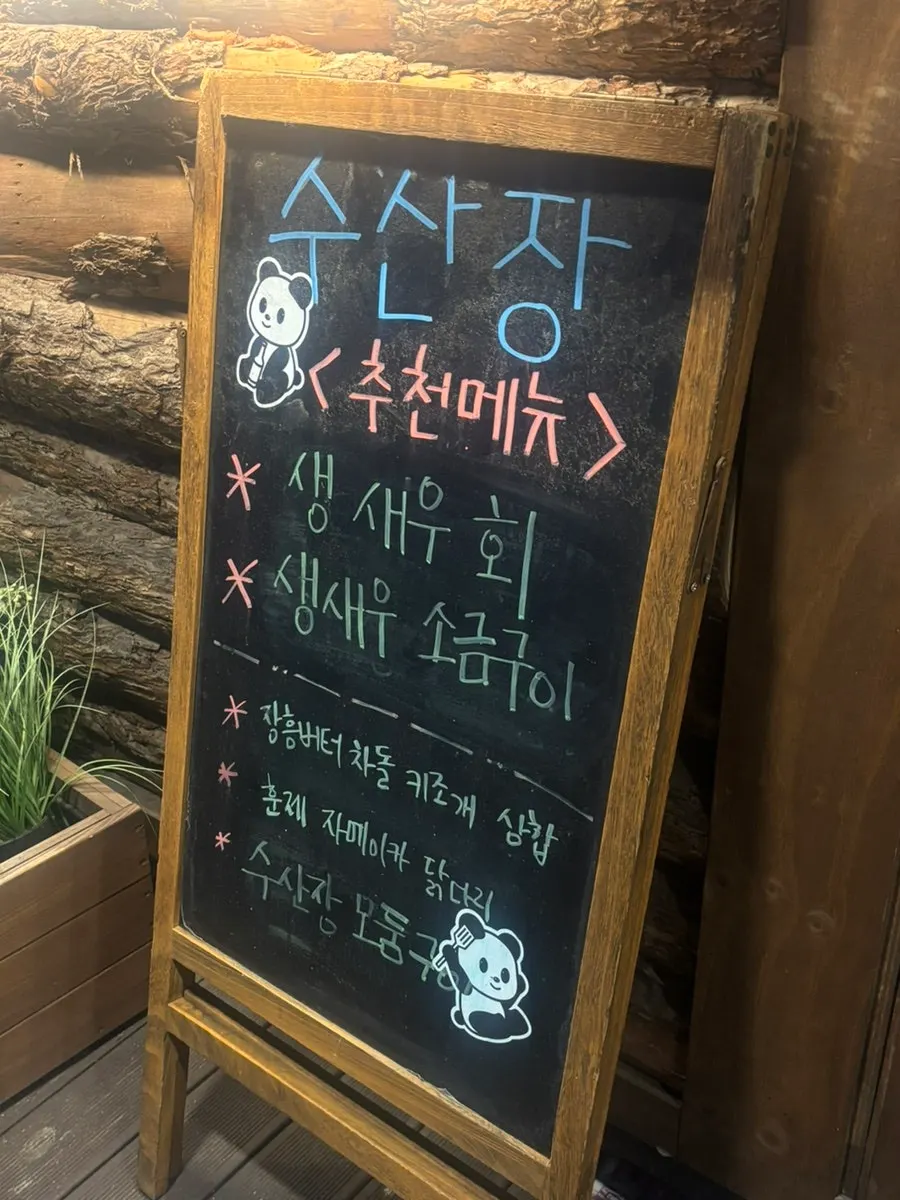 수산장
<추천메뉴>
* 생 새우 회
* 생새우 소금구이
* 장흥버터 차돌 키조개 삼합
* 훈제 자메이카 닭다리
* 수산장 모둠구이